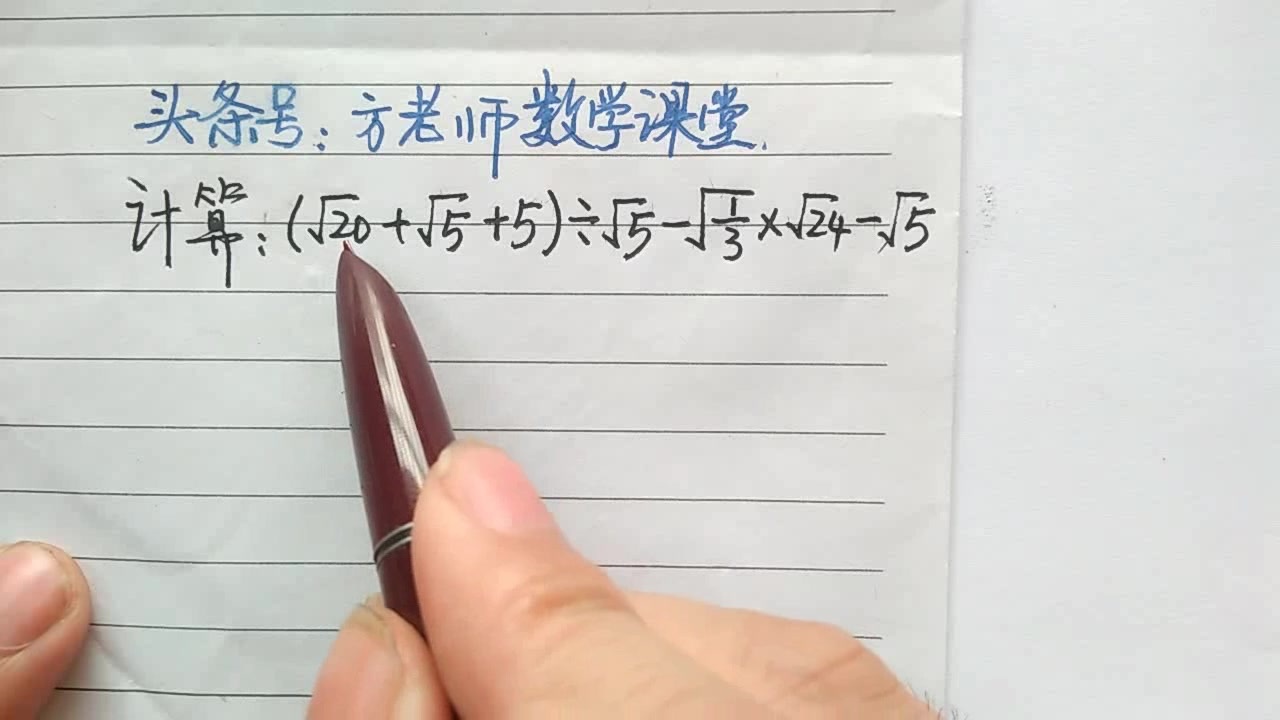 头条号：方老师数学课堂.
计算：(√20+√5+5)÷√5-√(1/3)×√24-√5